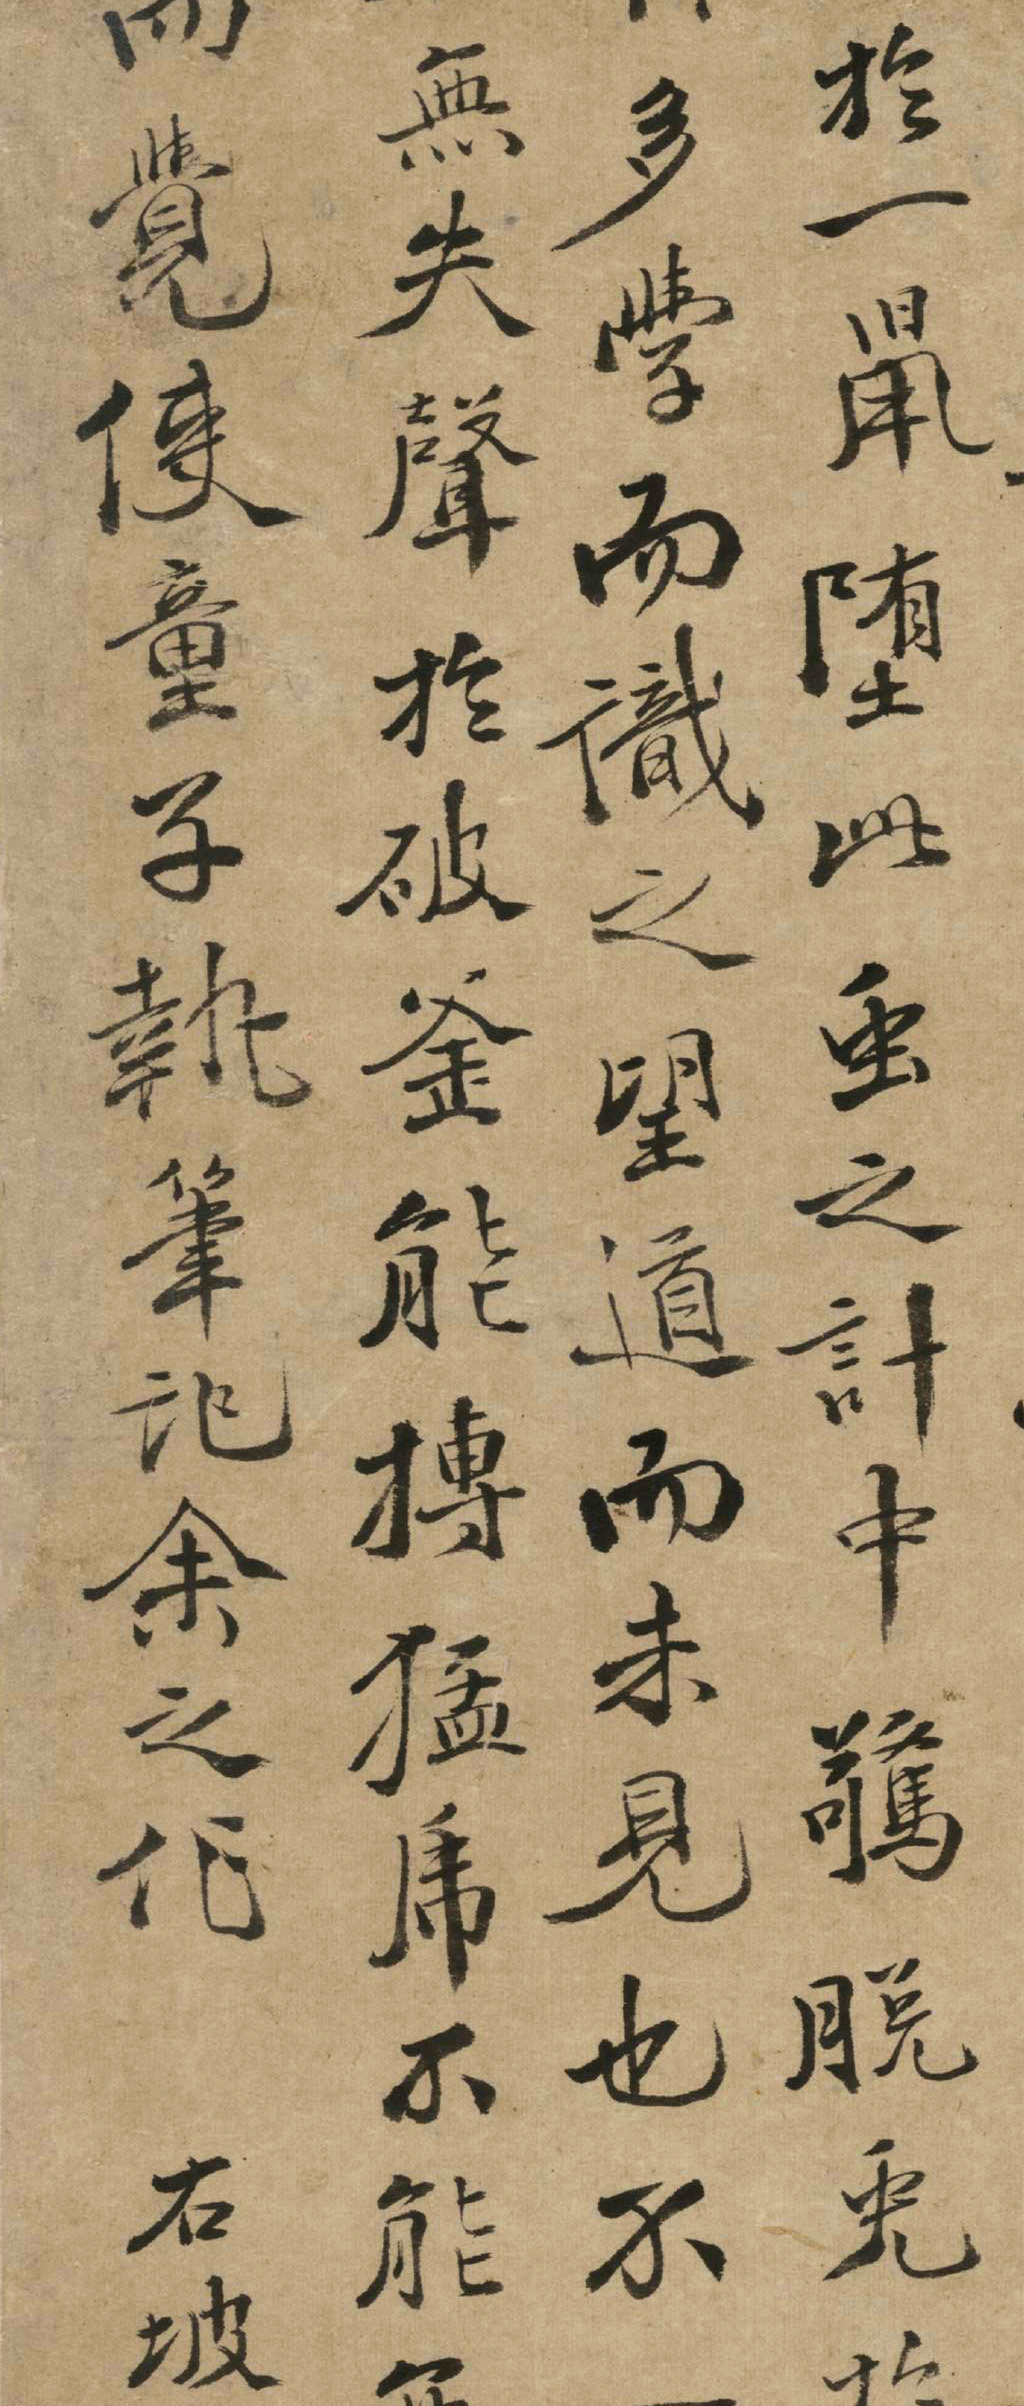 於一鼠墮此虫之計中驚脫兔於
多學而識之望道而未見也不一
無失聲於破釜能搏猛虎不能無
而覺使童子執筆記余之作 右坡